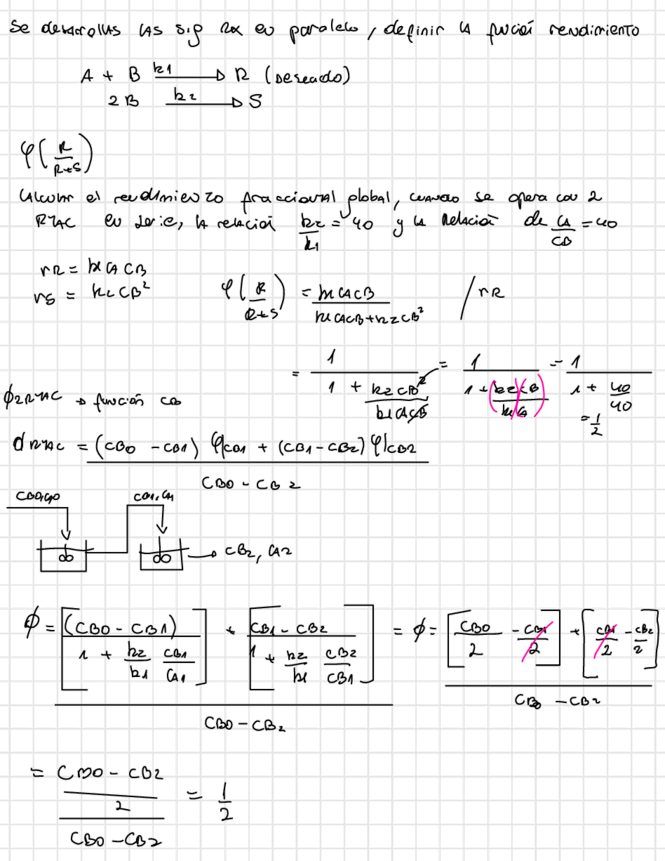 Se desarrollas las sig Rx en paralelo, definir la función rendimiento
A + B k1 → R (Deseado)
2B k2 → S
φ(R/R+S)
Calcular el rendimiento fraccional global, cuando se opera con 2
RTAC en serie, la relación k2/k1 = 40 y la Relación de CA/CB = 40
rR = k1 CA CB
rS = k2 CB²
φ(R/R+S) = k1CACB / k1CACB + k2CB² / rR
= 1 / 1 + k2CB²/k1CACB = 1 / 1 + (k2CB/k1CA) = 1 / 1 + 40/40
= 1/2
Φ2RTAC → función CB
Φ RTAC = (CB0 - CB1) φ|CB1 + (CB1 - CB2) φ|CB2 / CB0 - CB2
CB0, CA0
CB1, CA1
→ CB2, CA2
Φ = [(CB0 - CB1) / 1 + k2/k1 CB1/CA1] + [CB1 - CB2 / 1 + k2/k1 CB2/CB1] / CB0 - CB2 = Φ = [CB0/2 - CB1/2] + [CB1/2 - CB2/2] / CB0 - CB2
= CB0 - CB2 / 2 / CB0 - CB2 = 1/2